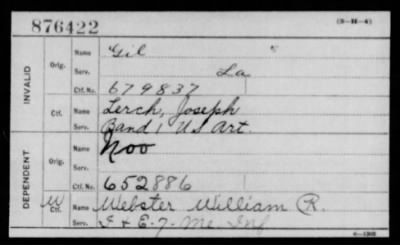 876422
(3-H-4)
INVALID
Orig.
Name Gil "
Serv. La
Ctf. No. 679837
Ctf.
Name Lerch, Joseph
Serv. Band 1 US Art.
DEPENDENT
Orig.
Name Noo
Serv.
Ctf. No. 652886
W Ctf.
Name Webster William R.
Serv. I & E-7-Me Inf